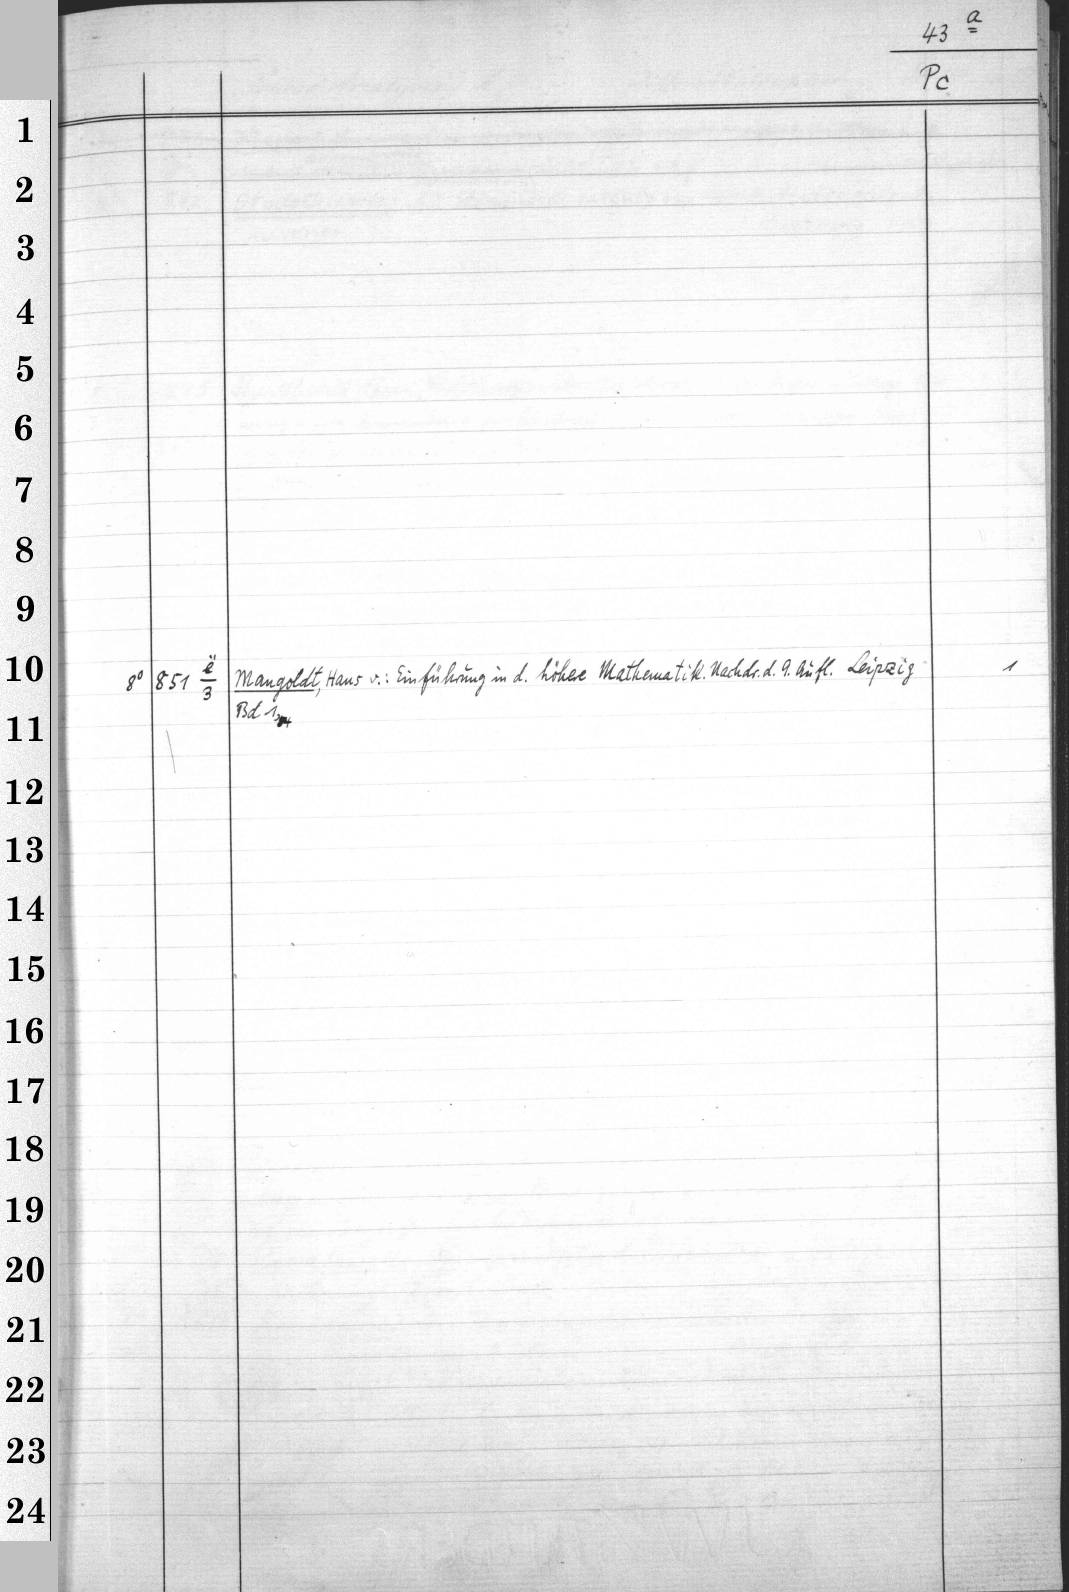 43 a
Pc
1
2
3
4
5
6
7
8
9
10
8° 851 ë/3 Mangoldt, Hans v.: Einführung in d. höhere Mathematik. Nachdr. d. 9. Aufl. Leipzig 1
Bd 1
11
12
13
14
15
16
17
18
19
20
21
22
23
24